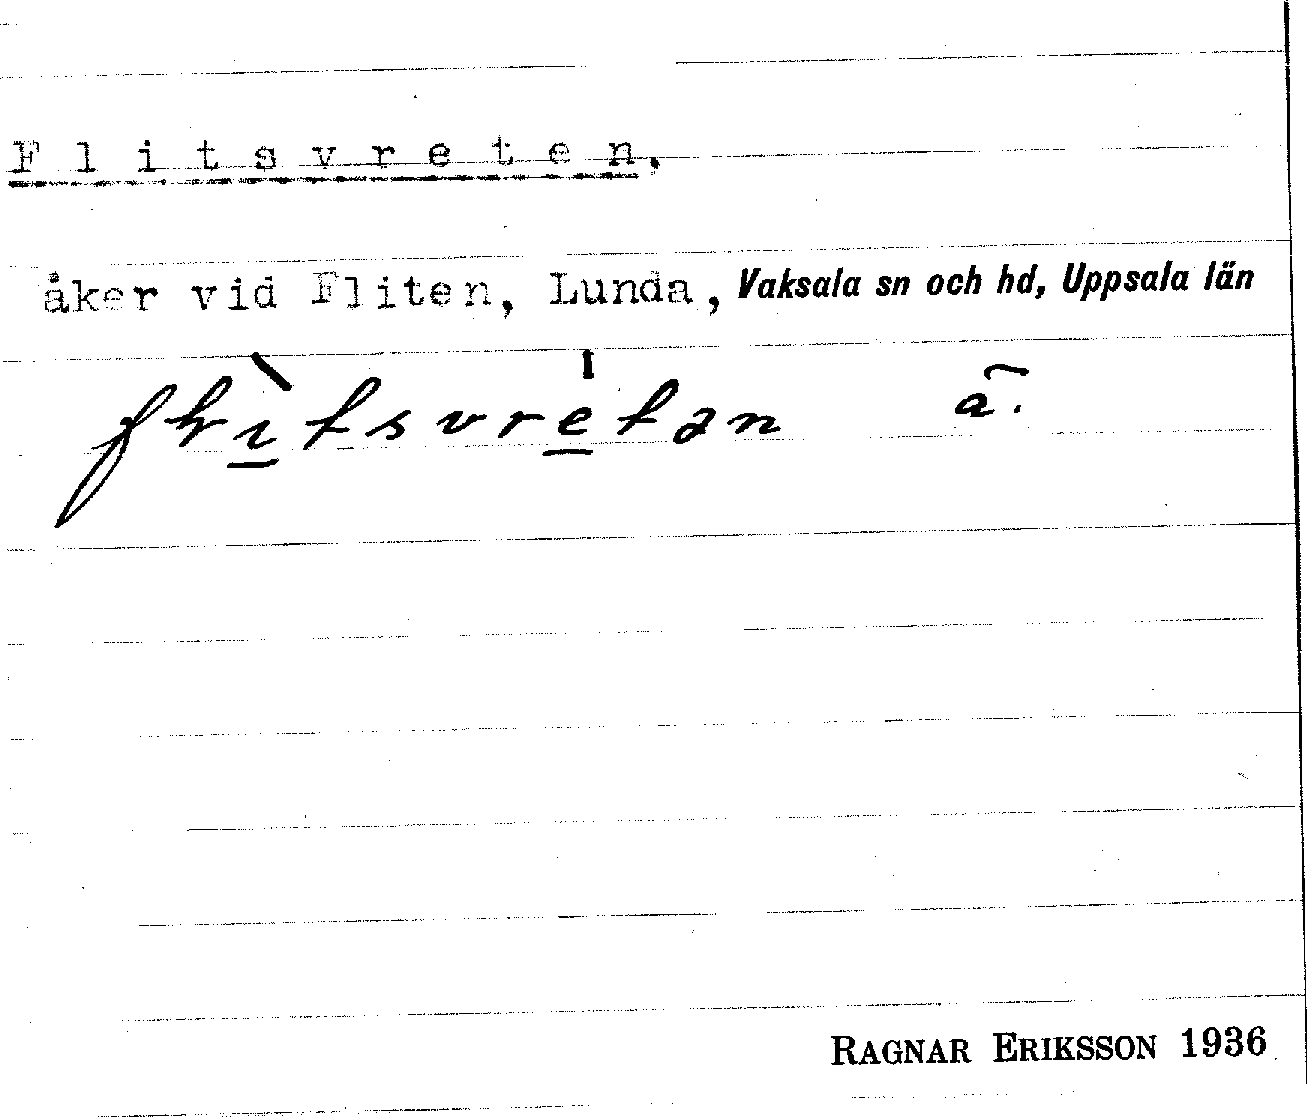 Flitsvreten,
åker vid Fliten, Lunda, Vaksala sn och hd, Uppsala län
flìtsvrétan ã.
RAGNAR ERIKSSON 1936